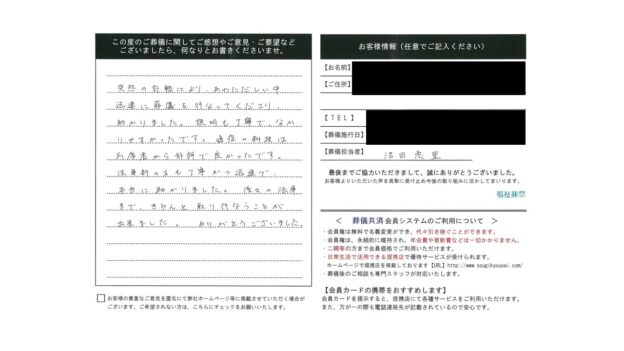 この度のご葬儀に関してご感想やご意見・ご要望など
ございましたら、何なりとお書きくださいませ。
突然の訃報により、あわただしい中
迅速に葬儀を行なってくださり、
助かりました。説明も丁寧で、わか
りやすかったです。通夜の料理は
列席者から好評で良かったです。
本当に助かりました。後日の法事
まで きちんと取り行なうことが
出来ました。ありがとうございました。
お客様の貴重なご意見を匿名にて弊社ホームページ等に掲載させていただく場合が
ございます。ご希望されない方は、こちらにチェックをお願いいたします。
お客様情報（任意でご記入ください）
【お名前】
【ご住所】
【TEL】
【葬儀施行日】
【葬儀担当者】
最後までご協力いただきまして、誠にありがとうございました。
お客様よりいただいた声を真摯に受け止め今後の取り組みに活かしてまいります。
福祉葬祭
＜ 葬儀共済 会員システムのご利用について ＞
・会員権は無料で名義変更ができ、代々引き継ぐことができます。
・会員権は、永続的に維持され、年会費や更新費などは一切かかりません。
・二親等の方まで会員価格でご利用いただけます。
・日常生活で活用できる提携店で優待サービスが受けられます。
ホームページで提携店を掲載しております【URL】http://www.sougikyousai.com/
・葬儀後のご相談も専門スタッフが対応いたします。
【会員カードの携帯をおすすめします】
会員カードを提示すると、提携店にて各種サービスをご利用いただけます。
また、万が一の際も電話連絡先が記載されているので安心です。